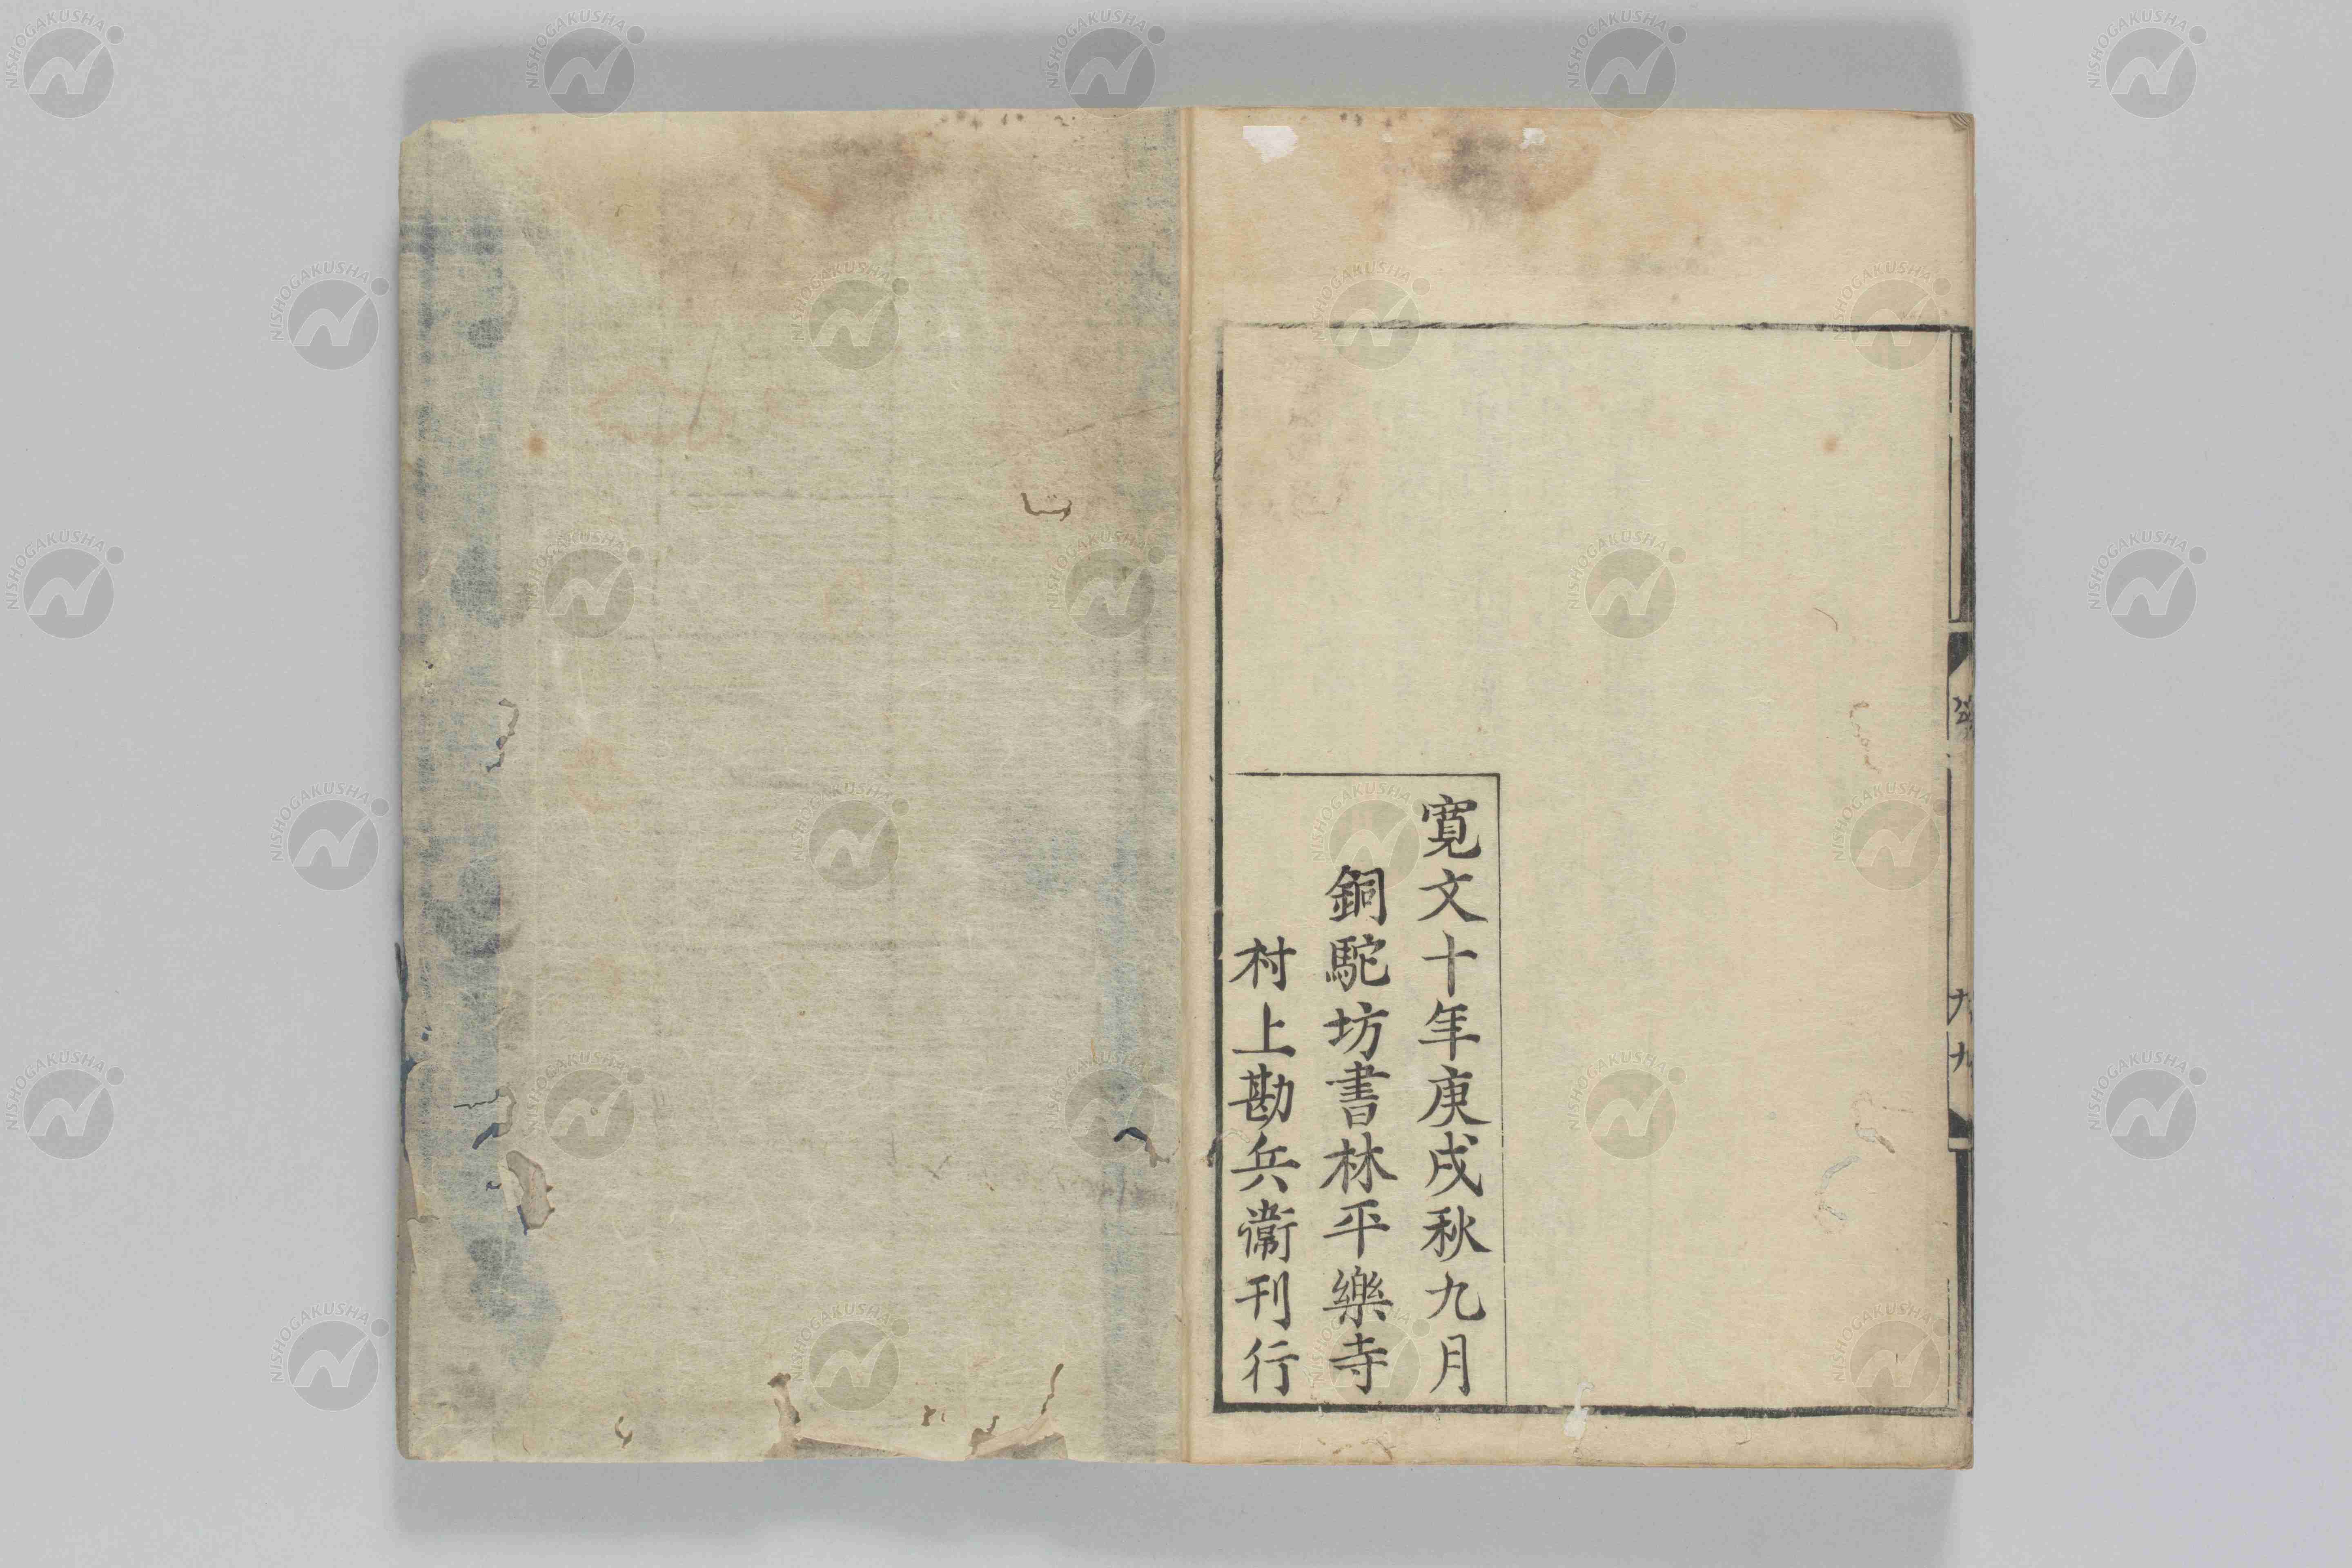 寛文十年庚戌秋九月
銅駝坊書林平樂寺
村上勘兵衞刊行
九九
NISHOGAKUSHA